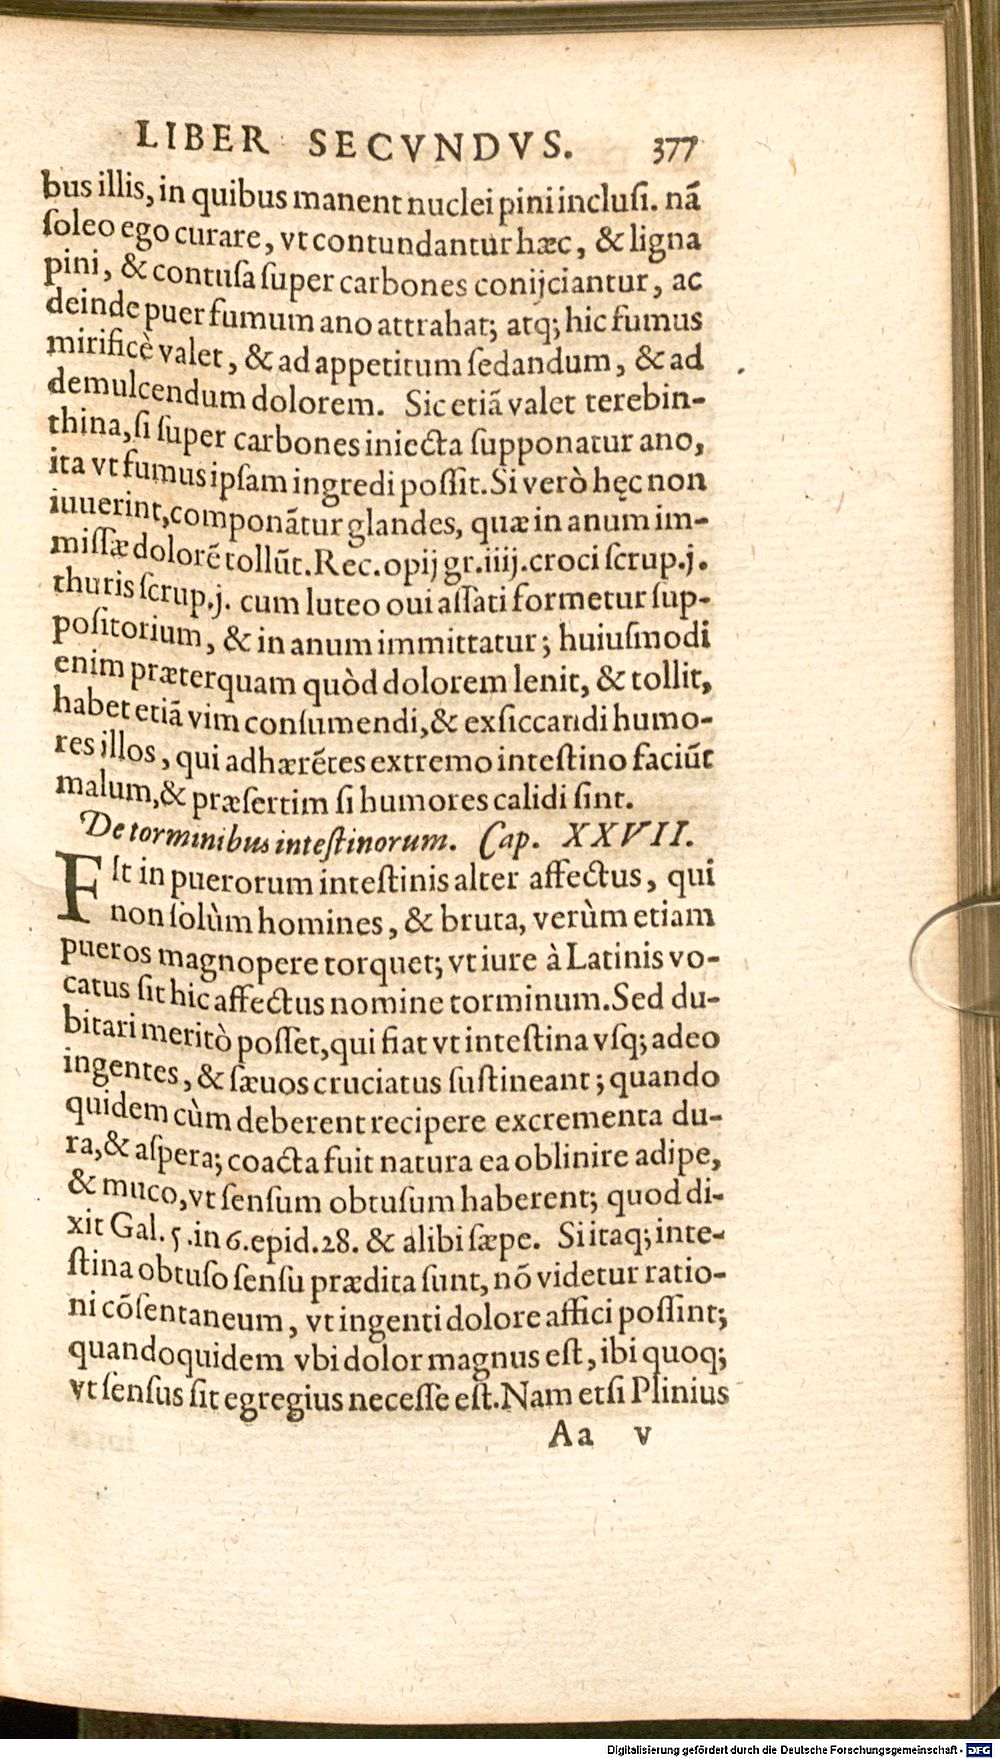 LIBER SECVNDVS. 377
bus illis, in quibus manent nuclei pini inclusi. nã
soleo ego curare, vt contundantur hæc, & ligna
pini, & contusa super carbones conijciantur, ac
deinde puer fumum ano attrahat; atq; hic fumus
mirificè valet, & ad appetitum sedandum, & ad
demulcendum dolorem. Sic etiã valet terebin-
thina, si super carbones iniecta supponatur ano,
ita vt fumus ipsam ingredi possit. Si verò hęc non
iuuerint, componãtur glandes, quæ in anum im-
missæ dolorẽ tollũt. Rec. opij gr. iiij. croci scrup. j.
thuris scrup. j. cum luteo oui assati formetur sup-
positorium, & in anum immittatur; huiusmodi
enim præterquam quòd dolorem lenit, & tollit,
habet etiã vim consumendi, & exsiccandi humo-
res illos, qui adhærẽtes extremo intestino faciũt
malum, & præsertim si humores calidi sint.
De torminibus intestinorum. Cap. XXVII.
Est in puerorum intestinis alter affectus, qui
non solùm homines, & bruta, verùm etiam
pueros magnopere torquet; vt iure à Latinis vo-
catus sit hic affectus nomine torminum. Sed du-
bitari meritò posset, qui fiat vt intestina vsq; adeo
ingentes, & sæuos cruciatus sustineant; quando
quidem cùm deberent recipere excrementa du-
ra, & aspera; coacta fuit natura ea oblinire adipe,
& muco, vt sensum obtusum haberent; quod di-
xit Gal. 5. in 6. epid. 28. & alibi sæpe. Si itaq; inte-
stina obtuso sensu prædita sunt, nõ videtur ratio-
ni cõsentaneum, vt ingenti dolore affici possint;
quandoquidem vbi dolor magnus est, ibi quoq;
vt sensus sit egregius necesse est. Nam etsi Plinius
Aa v
Digitalisierung gefördert durch die Deutsche Forschungsgemeinschaft - DFG